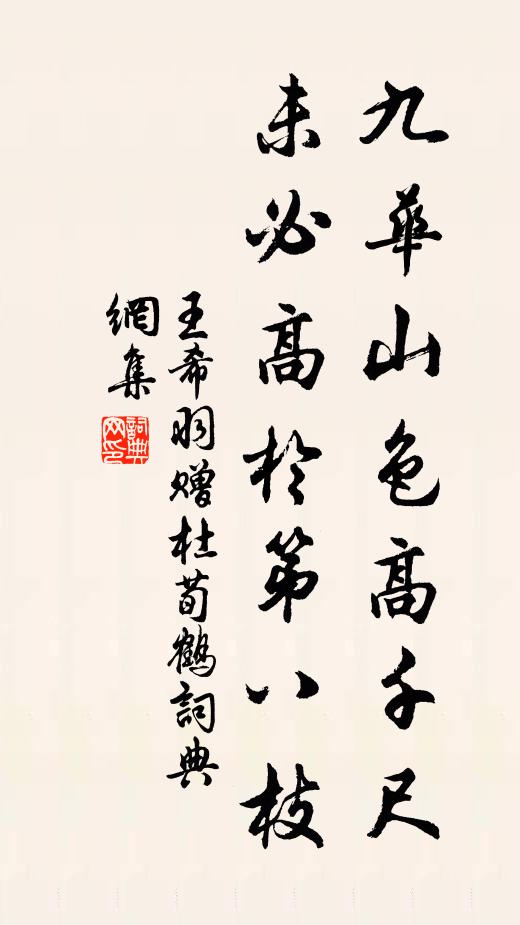 九華山色高千尺
未必高於第八枝
王希羽贈杜荀鶴詞典
網集
詞典網印